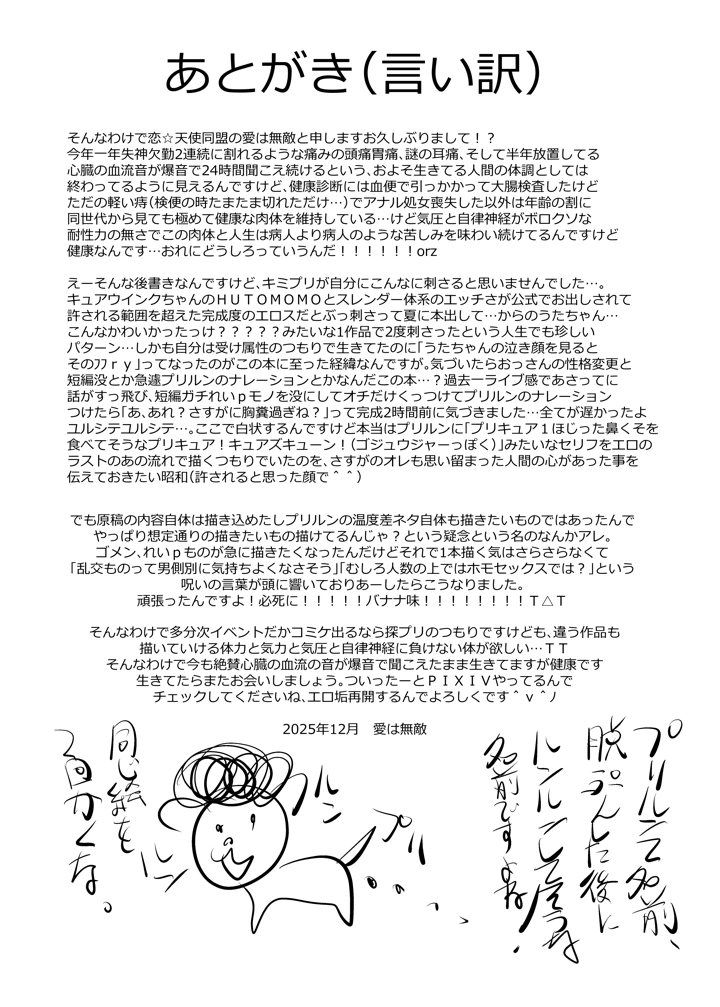 あとがき(言い訳)
そんなわけで恋☆天使同盟の愛は無敵と申しますお久しぶりまして！？
今年一年失神欠勤2連続に割れるような痛みの頭痛胃痛、謎の耳痛、そして半年放置してる
心臓の血流音が爆音で24時間聞こえ続けるという、おおよそ生きてる人間の体調としては
終わってるように見えるんですけど、健康診断には血便で引っかかって大腸検査したけど
ただの軽い痔(検便の時たまたま切れただけ…)でアナル処女喪失した以外は年齢の割に
同世代から見ても極めて健康な肉体を維持している…けど気圧と自律神経がボロクソな
耐性力の無さでこの肉体と人生は病人より病人のような苦しみを味わい続けてるんですけど
健康なんです…おれにどうしろっていうんだ！！！！！！orz
えーそんな後書きなんですけど、キミプリが自分にこんなに刺さると思いませんでした…。
キュアウインクちゃんのＨＵＴＯＭＯＭＯとスレンダー体系のエッチさが公式でお出しされて
許される範囲を超えた完成度のエロスだとぶっ刺さって夏に本出して…からのうたちゃん…
こんなかわいかったっけ？？？？？みたいな1作品で2度刺さったという人生でも珍しい
パターン…しかも自分は受け属性のつもりで生きてたのに「うたちゃんの泣き顔を見ると
そのﾌﾌｒｙ」ってなったのがこの本に至った経緯なんですが。気づいたらおっさんの性格変更と
短編没とか急遽プリルンのナレーションとかなんだこの本…？過去一ライブ感であさってに
話がすっ飛び、短編ガチれいｐモノを没にしてオチだけくっつけてプリルンのナレーション
つけたら「あ、あれ？さすがに胸糞過ぎね？」って完成2時間前に気づきました…全てが遅かったよ
ユルシテユルシテ…。ここで白状するんですけど本当はプリルンに「プリキュア１ほじった鼻くそを
食べてそうなプリキュア！キュアズキューン！(ゴジュウジャーっぽく)」みたいなセリフをエロの
ラストのあの流れで描くつもりでいたのを、さすがのオレも思い留まった人間の心があった事を
伝えておきたい昭和(許されると思った顔で＾＾)
でも原稿の内容自体は描き込めたしプリルンの温度差ネタ自体も描きたいものではあったんで
やっぱり想定通りの描きたいもの描けてるんじゃ？という疑念という名のなんかアレ。
ゴメン、れいｐものが急に描きたくなったんだけどそれで1本描く気はさらさらなくて
「乱交ものって男側別に気持ちよくなさそう」「むしろ人数の上ではホモセックスでは？」という
呪いの言葉が頭に響いておりあーしたらこうなりました。
頑張ったんですよ！必死に！！！！！バナナ味！！！！！！！！Ｔ△Ｔ
そんなわけで多分次イベントだかコミケ出るなら探プリのつもりですけども、違う作品も
描いていける体力と気力と気圧と自律神経に負けない体が欲しい…ＴＴ
そんなわけで今も絶賛心臓の血流の音が爆音で聞こえたまま生きてますが健康です
生きてたらまたお会いしましょう。ついったーとＰＩＸＩＶやってるんで
チェックしてくださいね、エロ垢再開するんでよろしくです＾ｖ＾ﾉ
2025年12月　愛は無敵
プリルンて名前、
脱ぷんした後に
ルンルンしてそうな
名前ですよね！
プリ
ルン
ルン
同じ絵を
2回かくな。